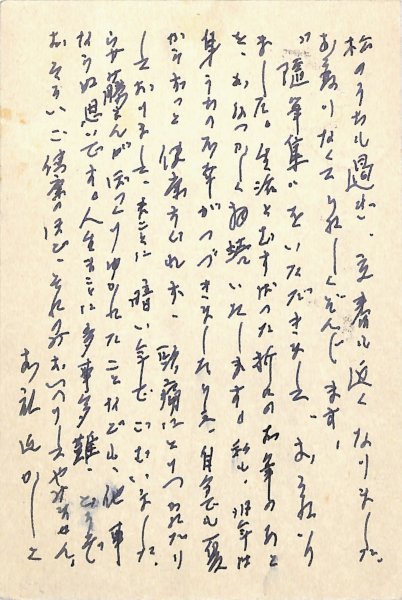 松のうちも過ぎ、立春も近くなりました。
お変りなくてうれしくぞんじます。
"随筆集"をいただきまして、お
ました。生活とむすばった折々のお筆のあと
を、おなつかしく拝読いたします。私も、昨年は
身うちの不幸がつづきましたりして、自分でも夏
からずっと健康すぐれず、頭痛にとりつかれたり
しておりまして、まことに暗い年でございました。
安藤さんがぽっくりゆかれたことなども、他事
ならぬ思いです。人生まことに多事多難、どうぞ
おそろいご健康のほど、それのみおいのりしてやみません。
かしこ